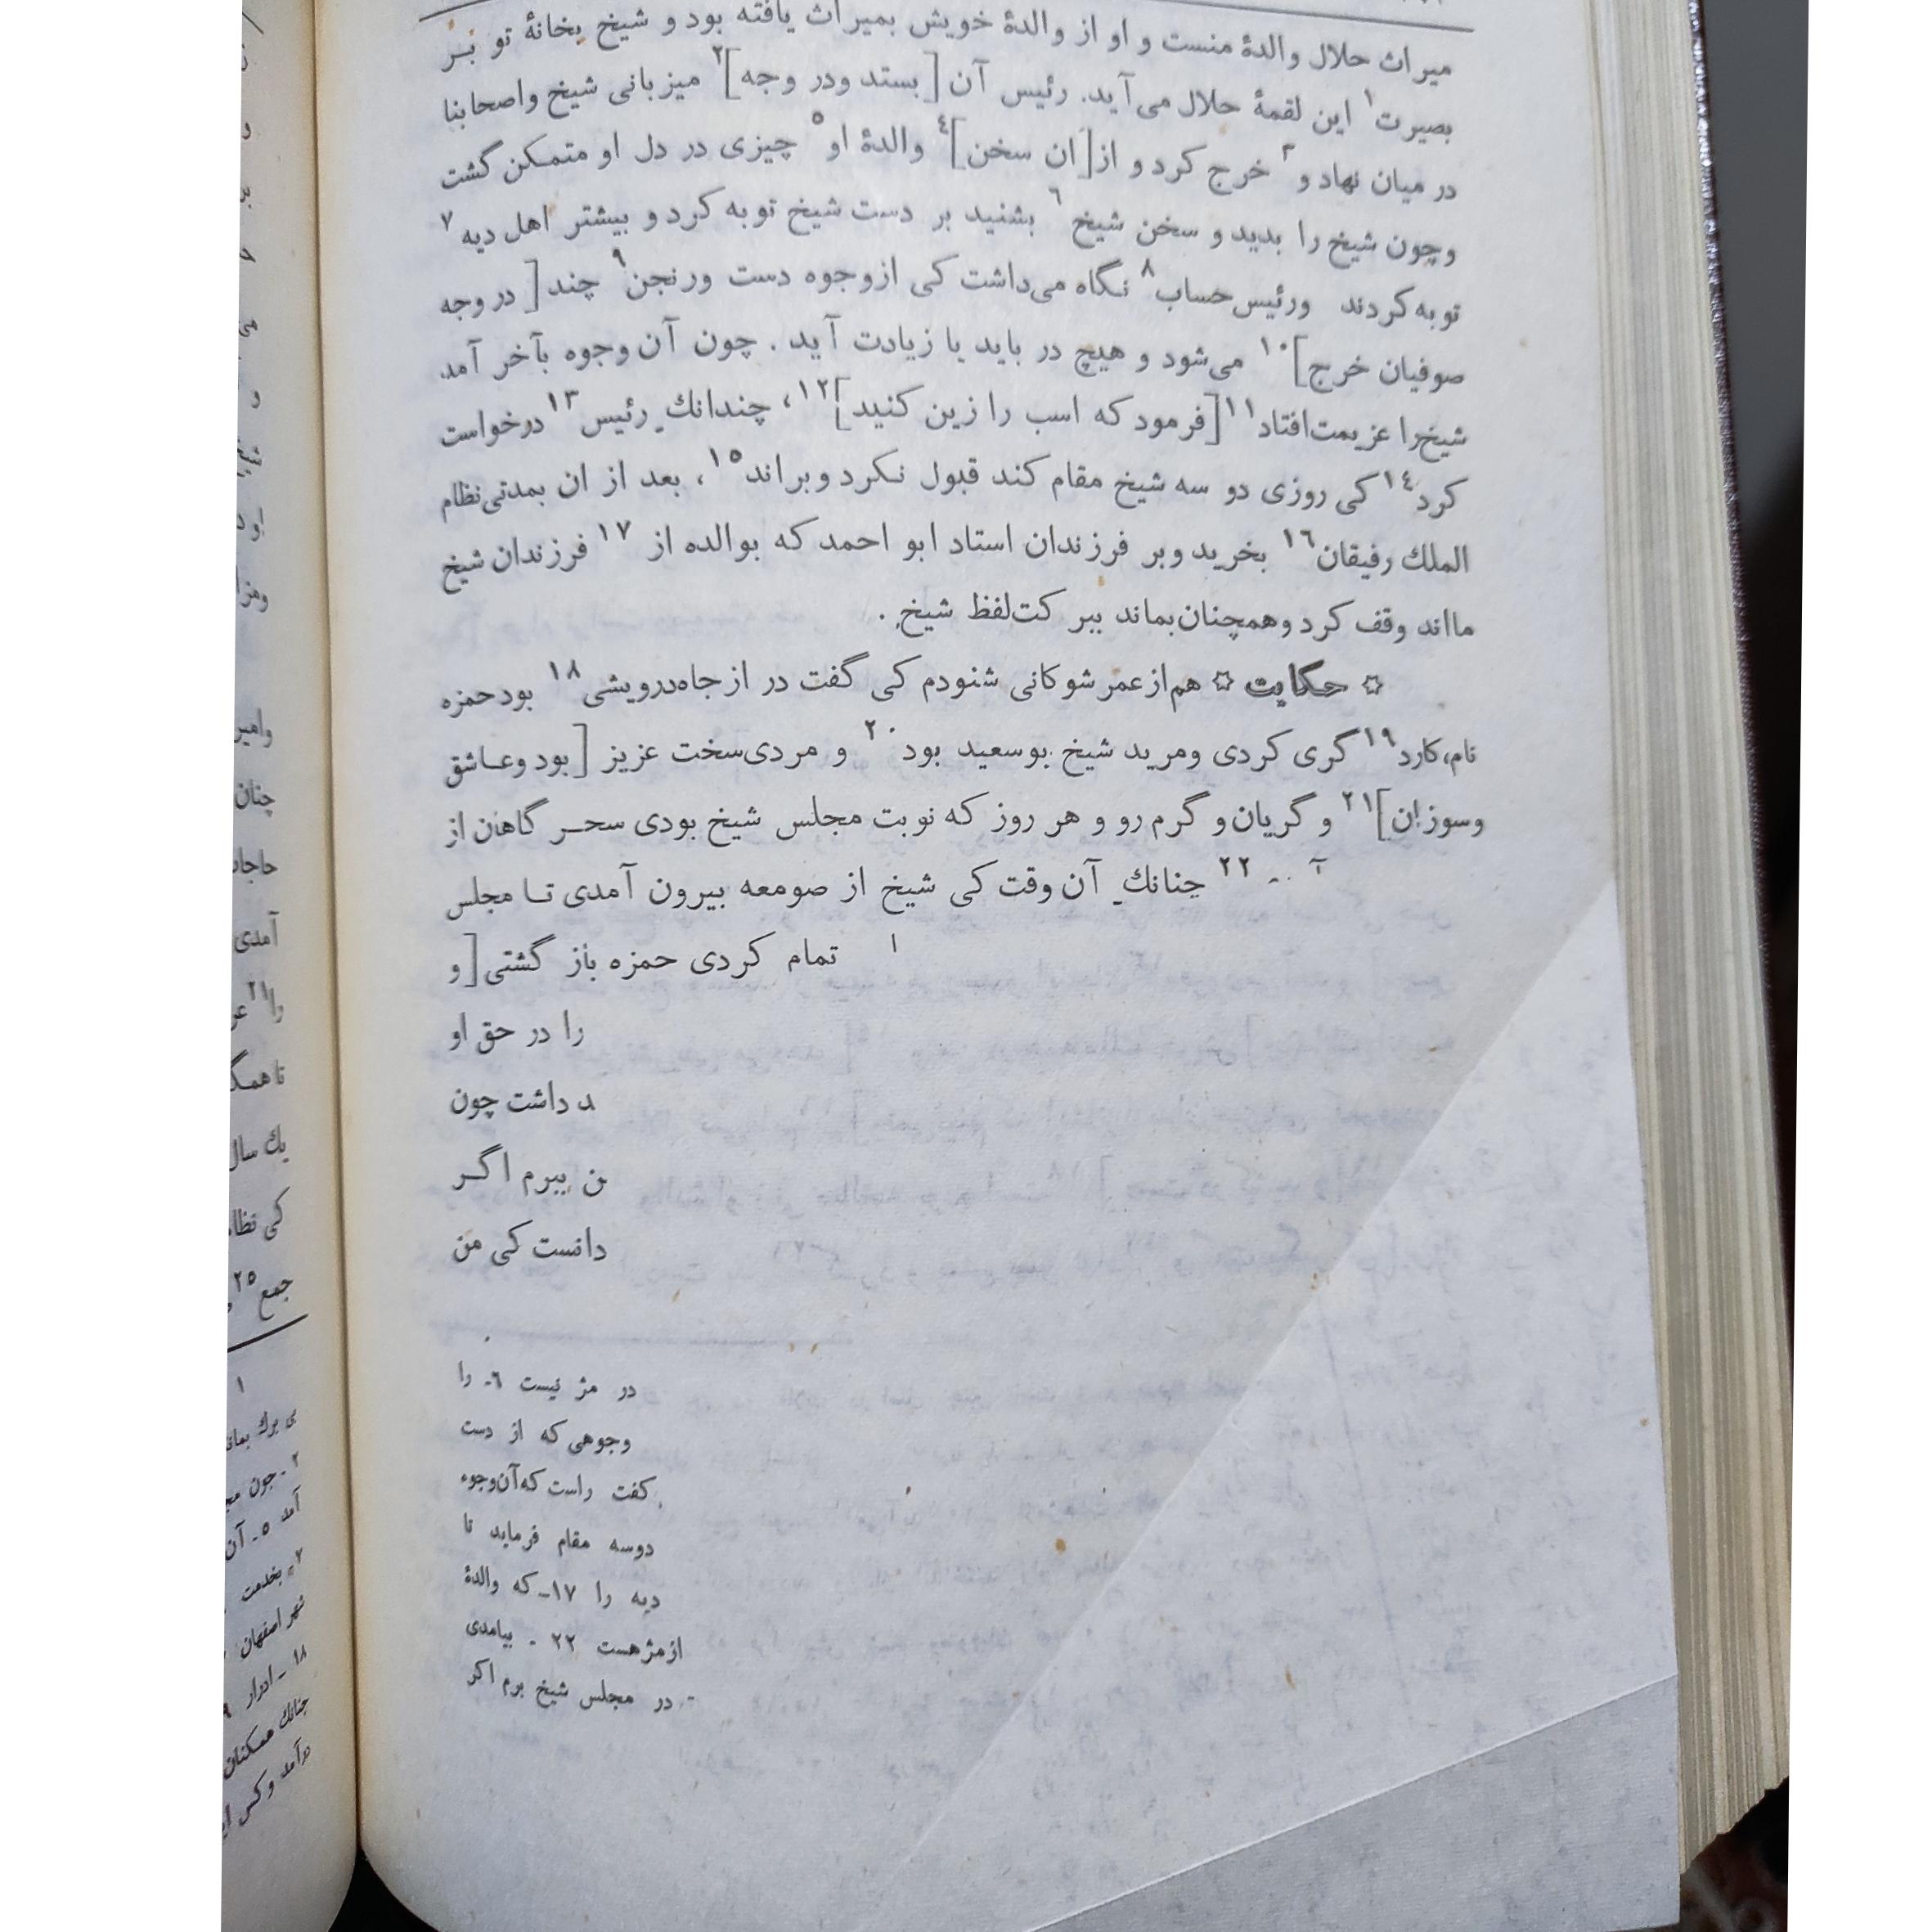 میراث حلال والدهٔ منست و او از والدهٔ خویش بمیراث یافته بود و شیخ بخانهٔ تو بـر
بصیرت۱ این لقمهٔ حلال می‌آید. رئیس آن [بستد ودر وجه]۲ میزبانی شیخ واصحابنا
در میان نهاد و۳ خرج کرد و از[ان سخن]٤ والدهٔ او٥ چیزی در دل او متمکن گشت
وچون شیخ را بدید و سخن شیخ٦ بشنید بر دست شیخ توبه کرد و بیشتر اهل دیه۷
توبه کردند ورئیس حساب۸ نگاه می‌داشت کی ازوجوه دست ورنجن۹ چند [در وجه
صوفیان خرج]۱۰ می‌شود و هیچ در باید یا زیادت آید. چون آن وجوه بآخر آمد
شیخ‌را عزیمت‌افتاد۱۱ [فرمود که اسب را زین کنید]۱۲، چندانك رئیس۱۳ درخواست
کرد۱٤ کی روزی دو سه شیخ مقام کند قبول نکرد وبراند۱٥، بعد از ان بمدتی نظام
الملك رفیقان۱٦ بخرید وبر فرزندان استاد ابو احمد که بوالده از۱۷ فرزندان شیخ
مااند وقف کرد وهمچنان بماند ببر کت لفظ شیخ.
☆ حکایت ☆ هم‌از عمر شوکانی شنودم کی گفت در از جاه‌درویشی۱۸ بود حمزه
نام، کارد۱۹ گری کردی ومرید شیخ بوسعید بود۲۰ و مردی‌سخت عزیز [بود وعـاشق
وسوزان]۲۱ و گریان و گرم رو و هر روز که نوبت مجلس شیخ بودی سحـر گاهان از
۲۲ چنانك آن وقت کی شیخ از صومعه بیرون آمدی تـا مجلس
تمام کردی حمزه باز گشتی [و
را در حق او
د داشت چون
ن ببرم اگـر
دانست کی من
در مژ نیست ٦ـ را
وجوهی که از دست
کفت راست که آن‌وجوه
دوسه مقام فرماید تا
دیه را ۱۷ـ که والدهٔ
ازمژهست ۲۲ ـ بیامدی
در مجلس شیخ برم اکر